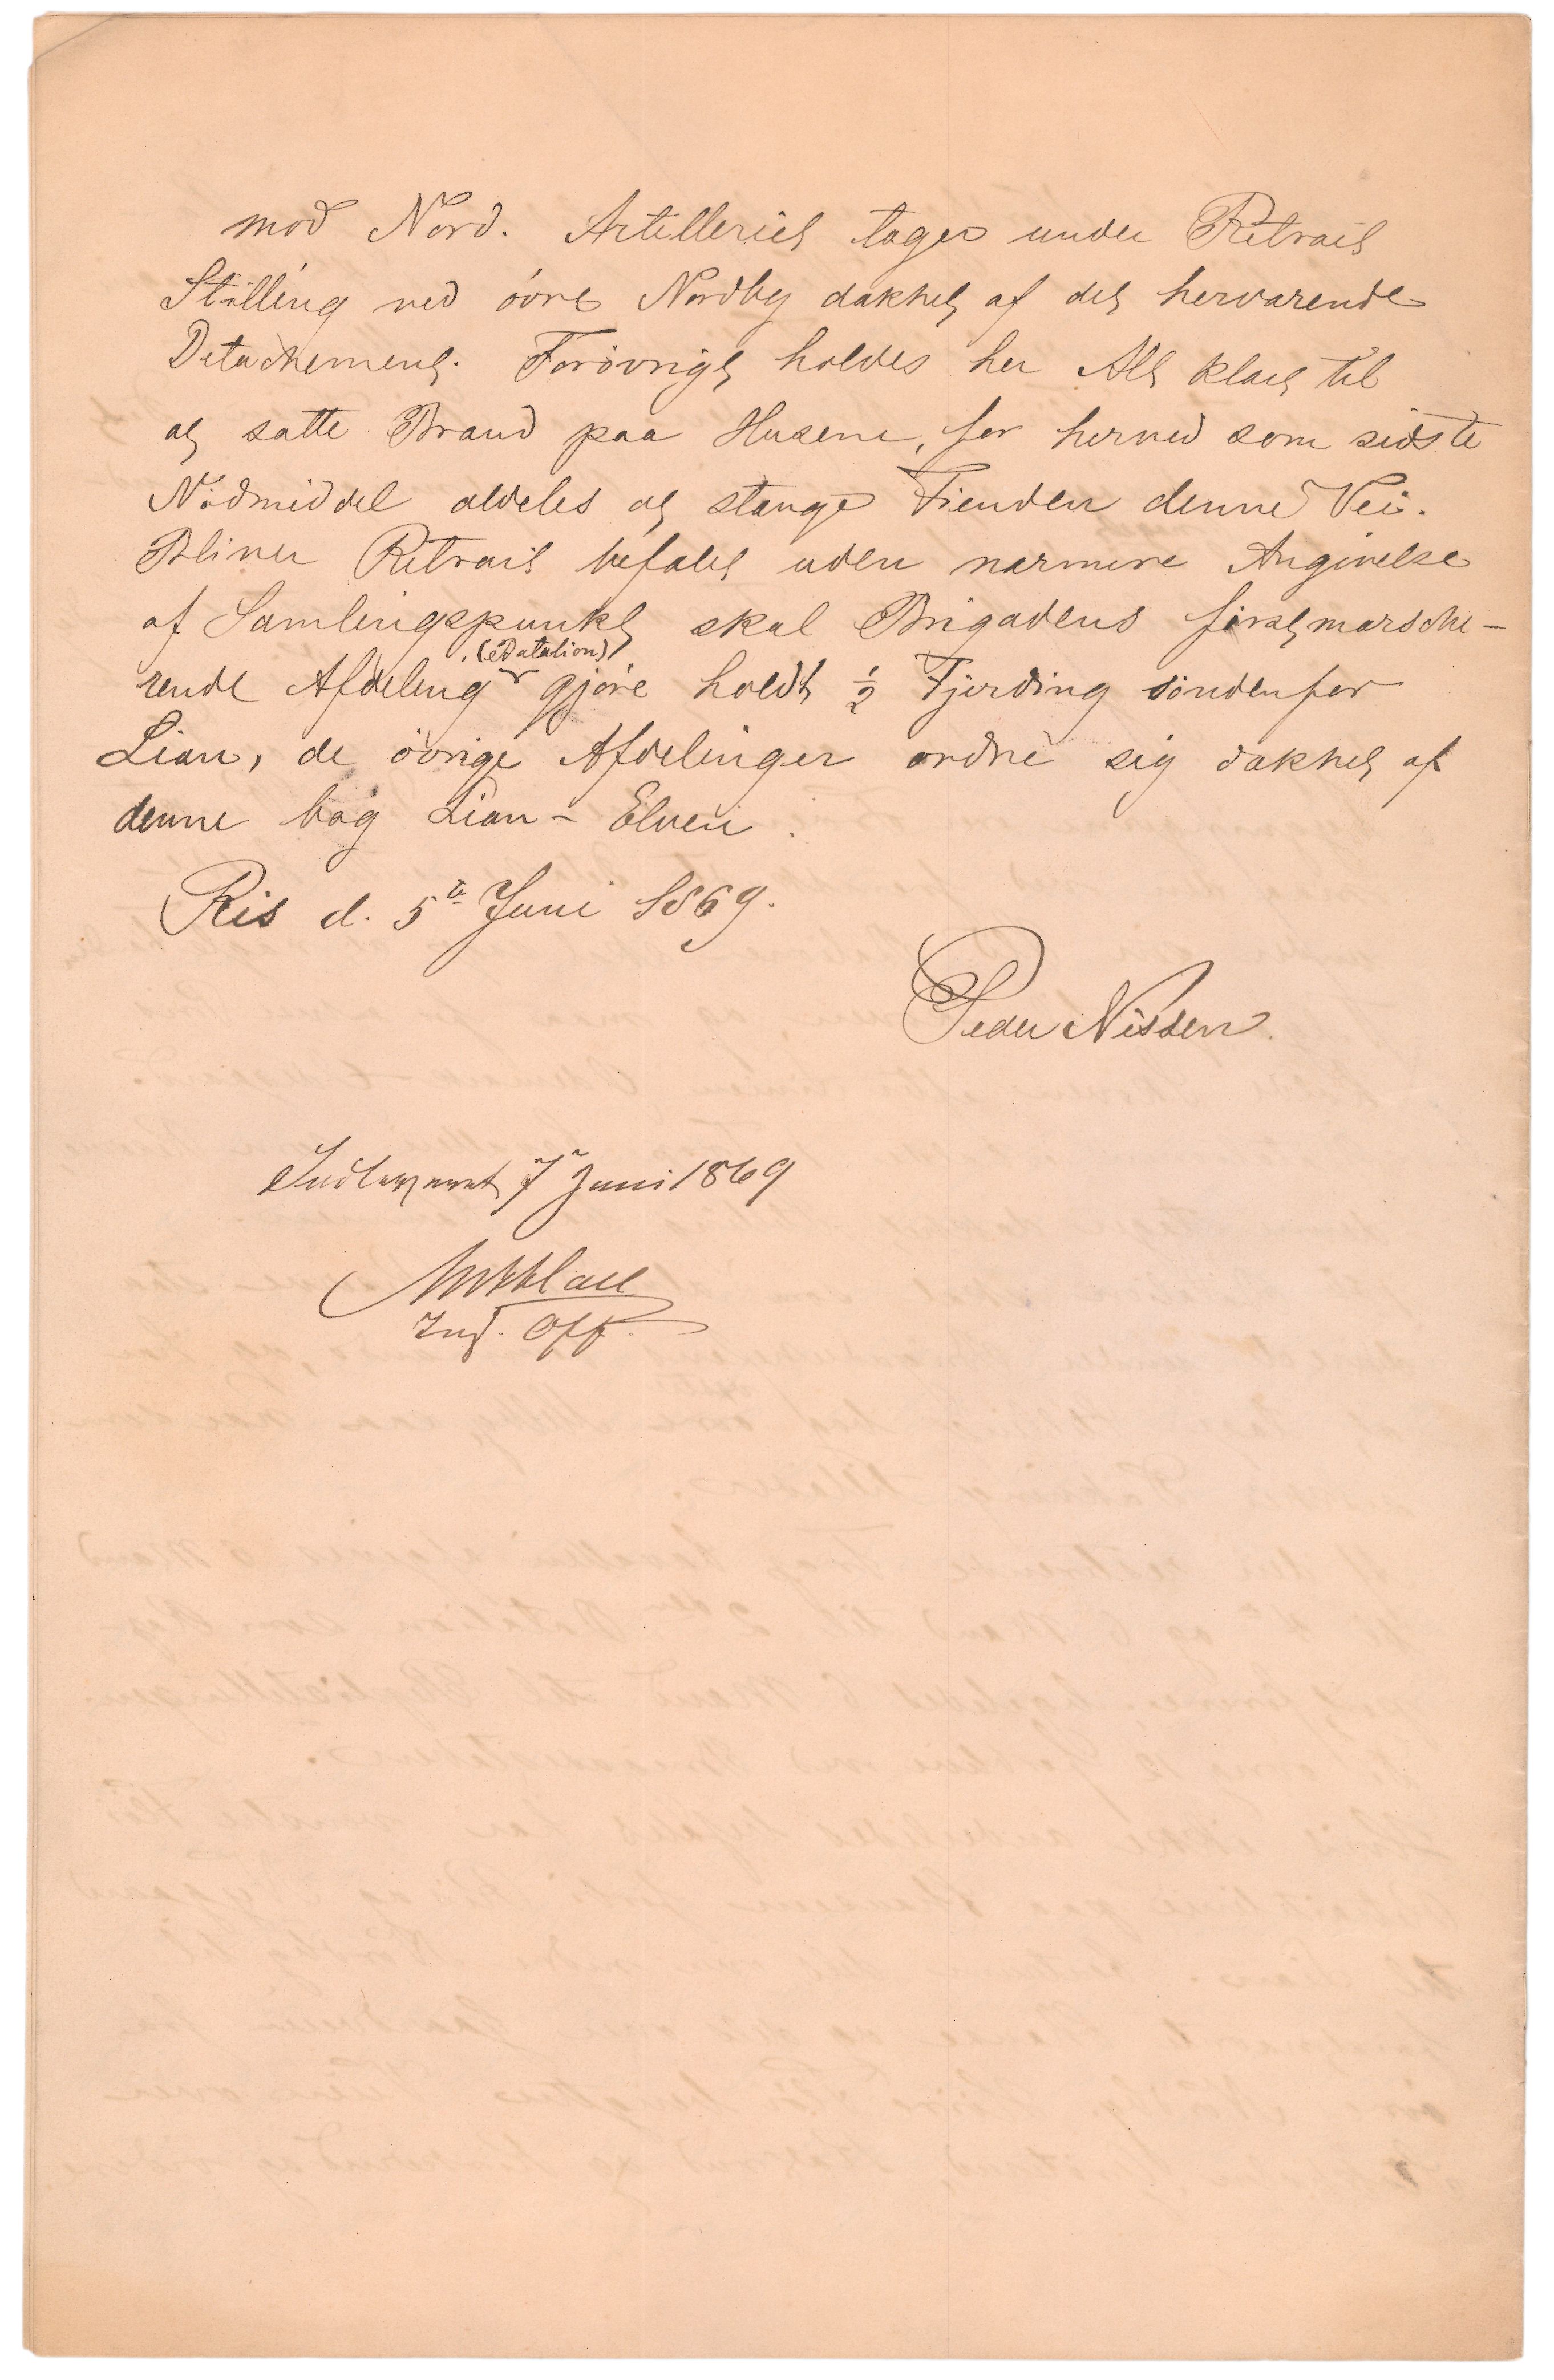 mod Nord. Artilleriet tager under Retrait
Stilling ved övre Nordby dækket af det herværende
Detachement. Forövrigt holdes her Alt klart til
at sætte Brand paa Husene, for herved som sidste
Nödmiddel aldeles at stænge Fienden denne Vei.
Bliver Retrait befalet uden nærmere Angivelse
af Samlingspunkt skal Brigadens först marsche-
(1 Batalion)
rende Afdeling gjöre holdt ½ Fjerding söndenfor
Lian, de övrige Afdelinger ordne sig dækket af
denne bag Lian-Elven.
Ris d. 5te Juni 1869.
Peder Nissen
Indleveret 7 Juni 1869
Insp. Off.